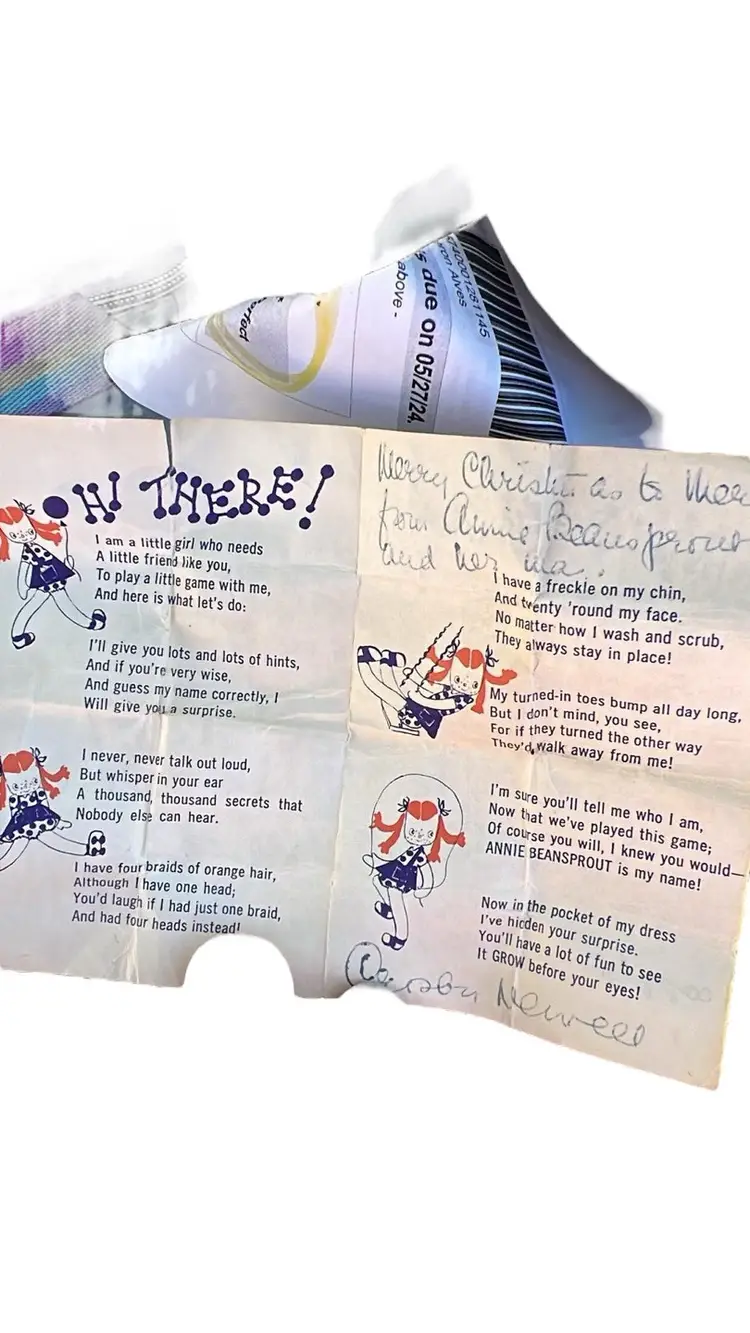 s due on 05/27/24.
above -
7410001281145
Alves
OH THERE!
I am a little girl who needs
A little friend like you,
To play a little game with me,
And here is what let's do:
I'll give you lots and lots of hints,
And if you're very wise,
And guess my name correctly, I
Will give you a surprise.
I never, never talk out loud,
But whisper in your ear
A thousand, thousand secrets that
Nobody else can hear.
I have four braids of orange hair,
Although I have one head;
You'd laugh if I had just one braid,
And had four heads instead!
Merry Christmas to
from Annie Beansprout
and her ma.
I have a freckle on my chin,
And twenty 'round my face.
No matter how I wash and scrub,
They always stay in place!
My turned-in toes bump all day long,
But I don't mind, you see,
For if they turned the other way
They'd walk away from me!
I'm sure you'll tell me who I am,
Now that we've played this game;
Of course you will, I knew you would—
ANNIE BEANSPROUT is my name!
Now in the pocket of my dress
I've hidden your surprise.
You'll have a lot of fun to see
It GROW before your eyes!
Crosby Newell